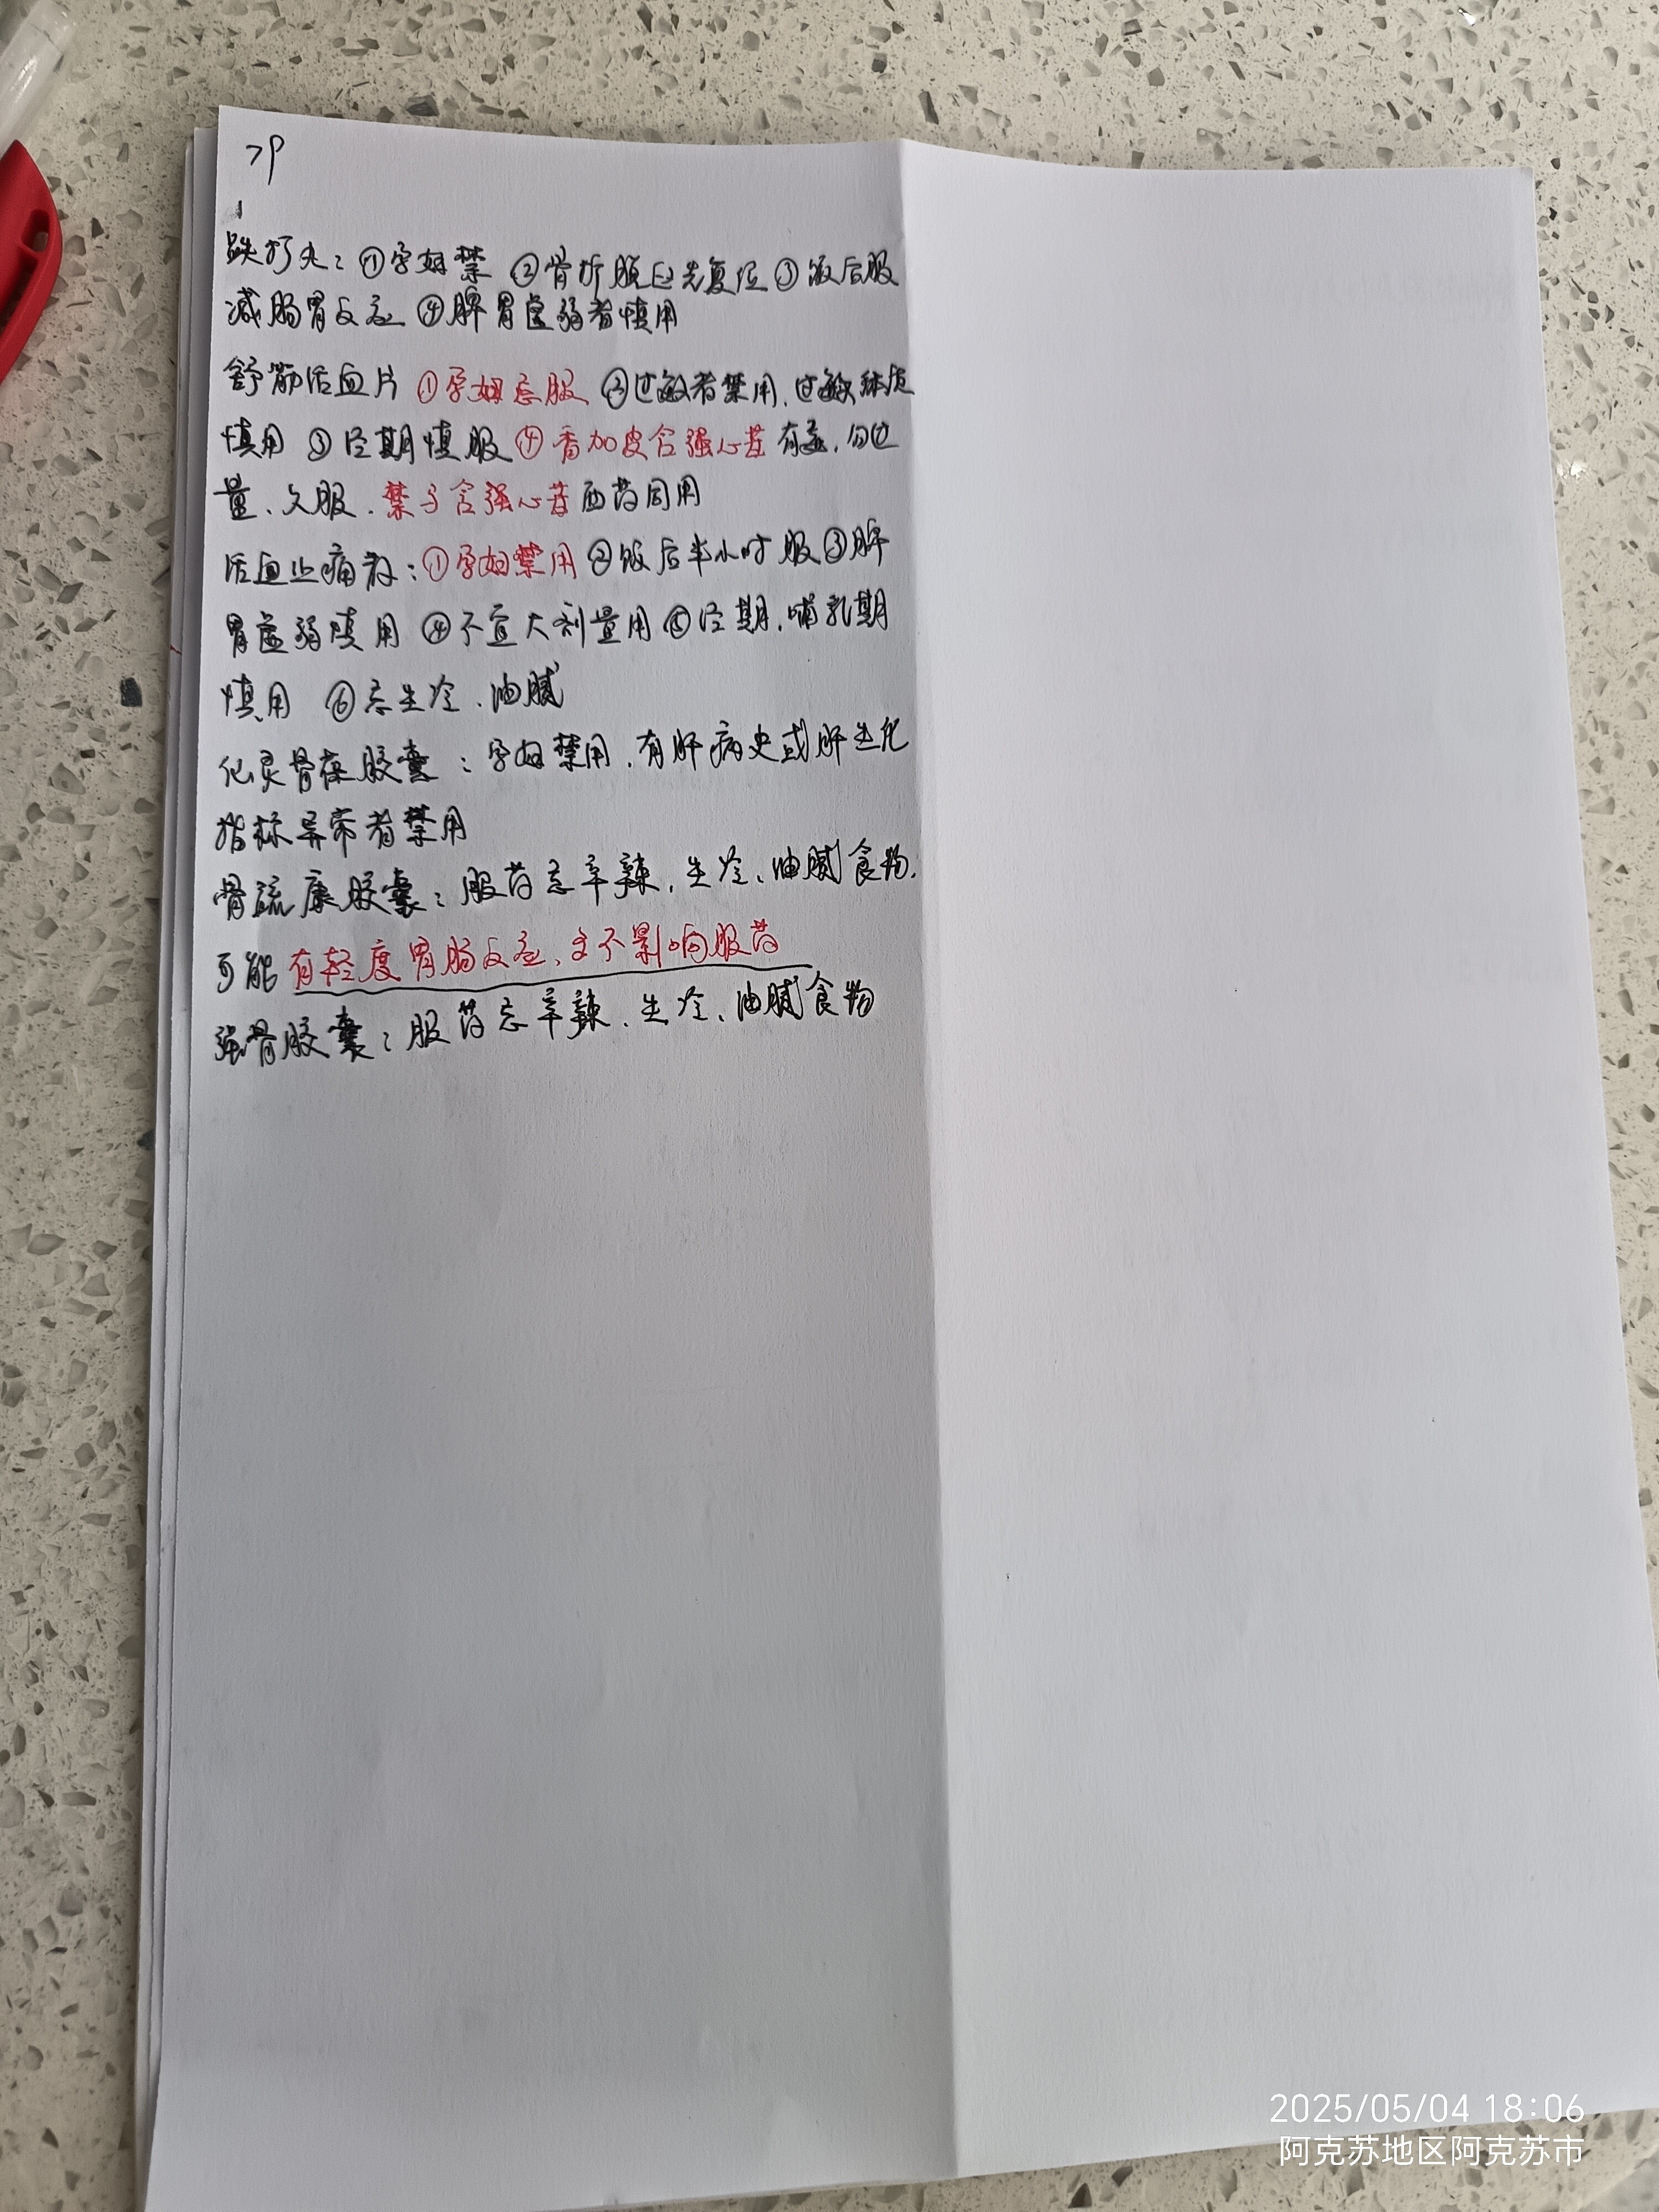 跌打丸：①孕妇禁 ②骨折脱臼先复位③饭后服
减肠胃反应 ④脾胃虚弱者慎用
舒筋活血片 ①孕妇忌服 ②过敏者禁用、过敏体质
慎用 ③经期慎服④香加皮含强心苷有毒，勿过
量、久服．禁与含强心苷西药同用
活血止痛散：①孕妇禁用②饭后半小时服③脾
胃虚弱慎用 ④不宜大剂量用⑤经期、哺乳期
慎用 ⑥忌生冷、油腻
仙灵骨葆胶囊：孕妇禁用．有肝病史或肝生化
指标异常者禁用
骨疏康胶囊：服药忌辛辣、生冷、油腻食物．
可能有轻度胃肠反应、不影响服药
强骨胶囊：服药忌辛辣、生冷、油腻食物
2025/05/04 18:06
阿克苏地区阿克苏市